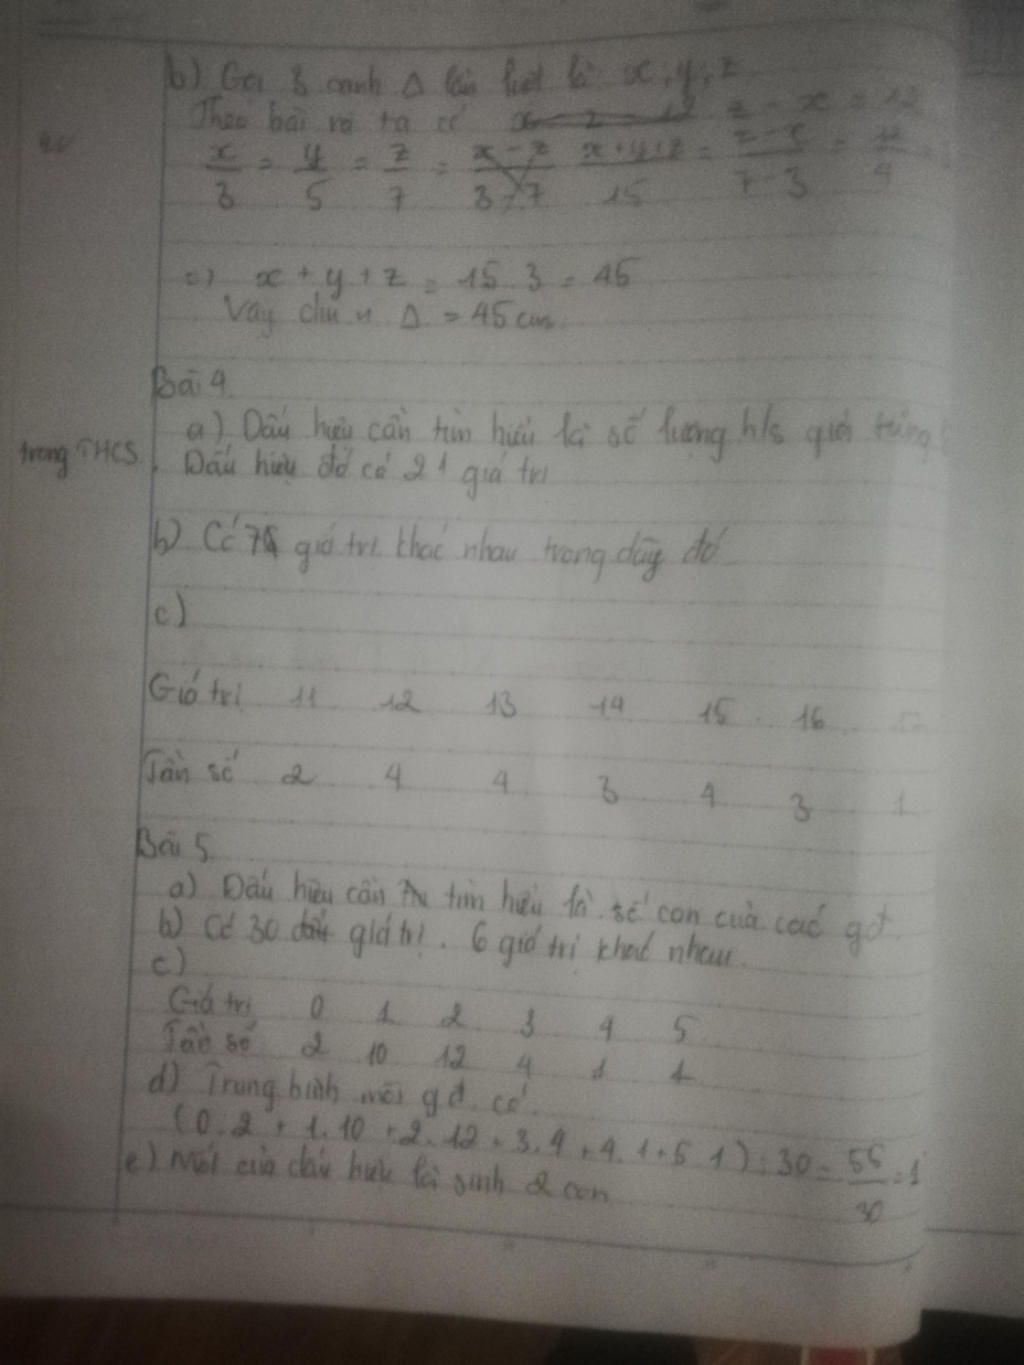 b) Gọi 3 cạnh Δ lần lượt là x; y; z
Theo bài ra ta có z - x = 12
x/3 = y/5 = z/7 = x+y+z/15 = z-x/7-3 = 12/4
=) x + y + z = 15.3 = 45
Vậy chu vi Δ = 45 cm
Bài 4
a) Dấu hiệu cần tìm hiểu là số lượng h/s giỏi từng
trong THCS. Dấu hiệu đó có 21 giá trị
b) Có 7 giá trị khác nhau trong dãy đó
c)
Giá trị 11 12 13 14 15 16 17
Tần số 2 4 4 3 4 3 1
Bài 5
a) Dấu hiệu cần tìm hiểu là số con của các gđ.
b) Có 30 giá trị. 6 giá trị khác nhau.
c)
Giá trị 0 1 2 3 4 5
Tần số 2 10 12 4 1 1
d) Trung bình mỗi gđ có
(0.2 + 1.10 + 2.12 + 3.4 + 4.1 + 5.1) : 30 = 55/30 = 1
e) Mốt của dấu hiệu là sinh 2 con